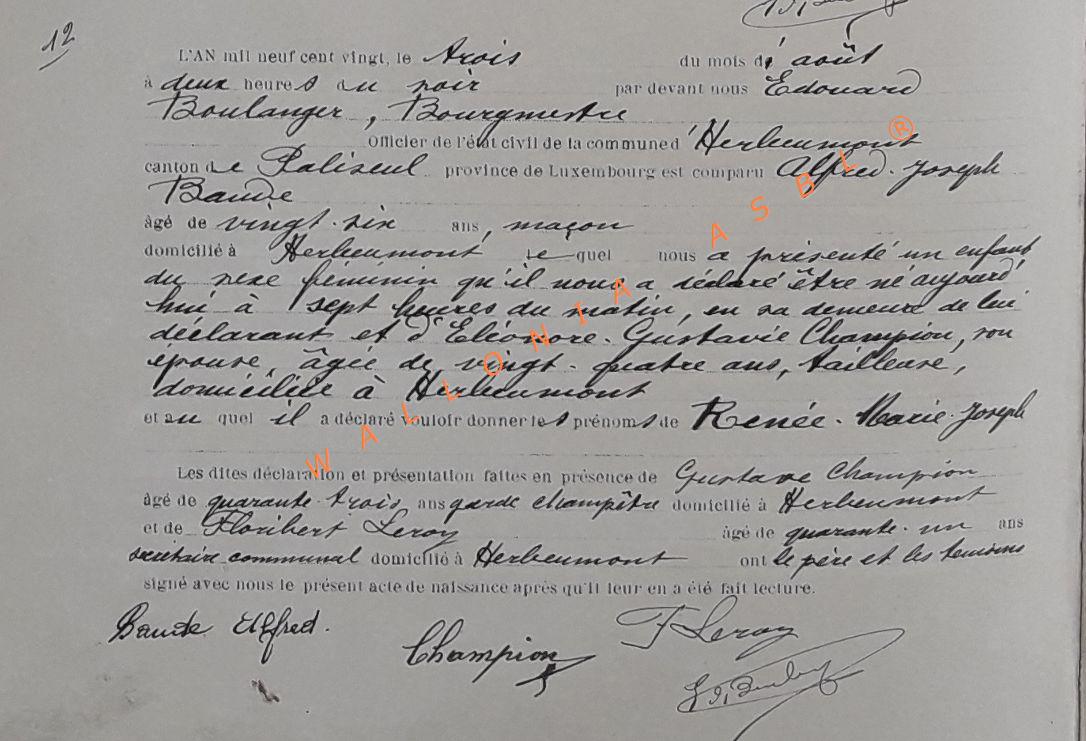 12
L'AN mil neuf cent vingt, le trois du mois d'août
à deux heures du soir par devant nous Edouard
Boulanger, Bourgmestre
Officier de l'état civil de la commune d'Herbeumont
canton de Paliseul province de Luxembourg est comparu Alfred-Joseph
Baude
âgé de vingt-six ans, maçon
domicilié à Herbeumont lequel nous a présenté un enfant
du sexe féminin qu'il nous a déclaré être né aujourd'
hui à sept heures du matin, en sa demeure de lui
déclarant et d'Eléonore-Gustavie Champion, son
épouse, âgée de vingt-quatre ans, tailleuse,
domiciliée à Herbeumont
et auquel il a déclaré vouloir donner les prénoms de Renée-Marie-Joseph
Les dites déclaration et présentation faites en présence de Gustave Champion
âgé de quarante-trois ans garde champêtre domicilié à Herbeumont
et de Floribert Leroy âgé de quarante-un ans
secrétaire communal domicilié à Herbeumont ont le père et les témoins
signé avec nous le présent acte de naissance après qu'il leur en a été fait lecture.
Baude Alfred.
Champion
F Leroy
WALLONIA ASBL ®